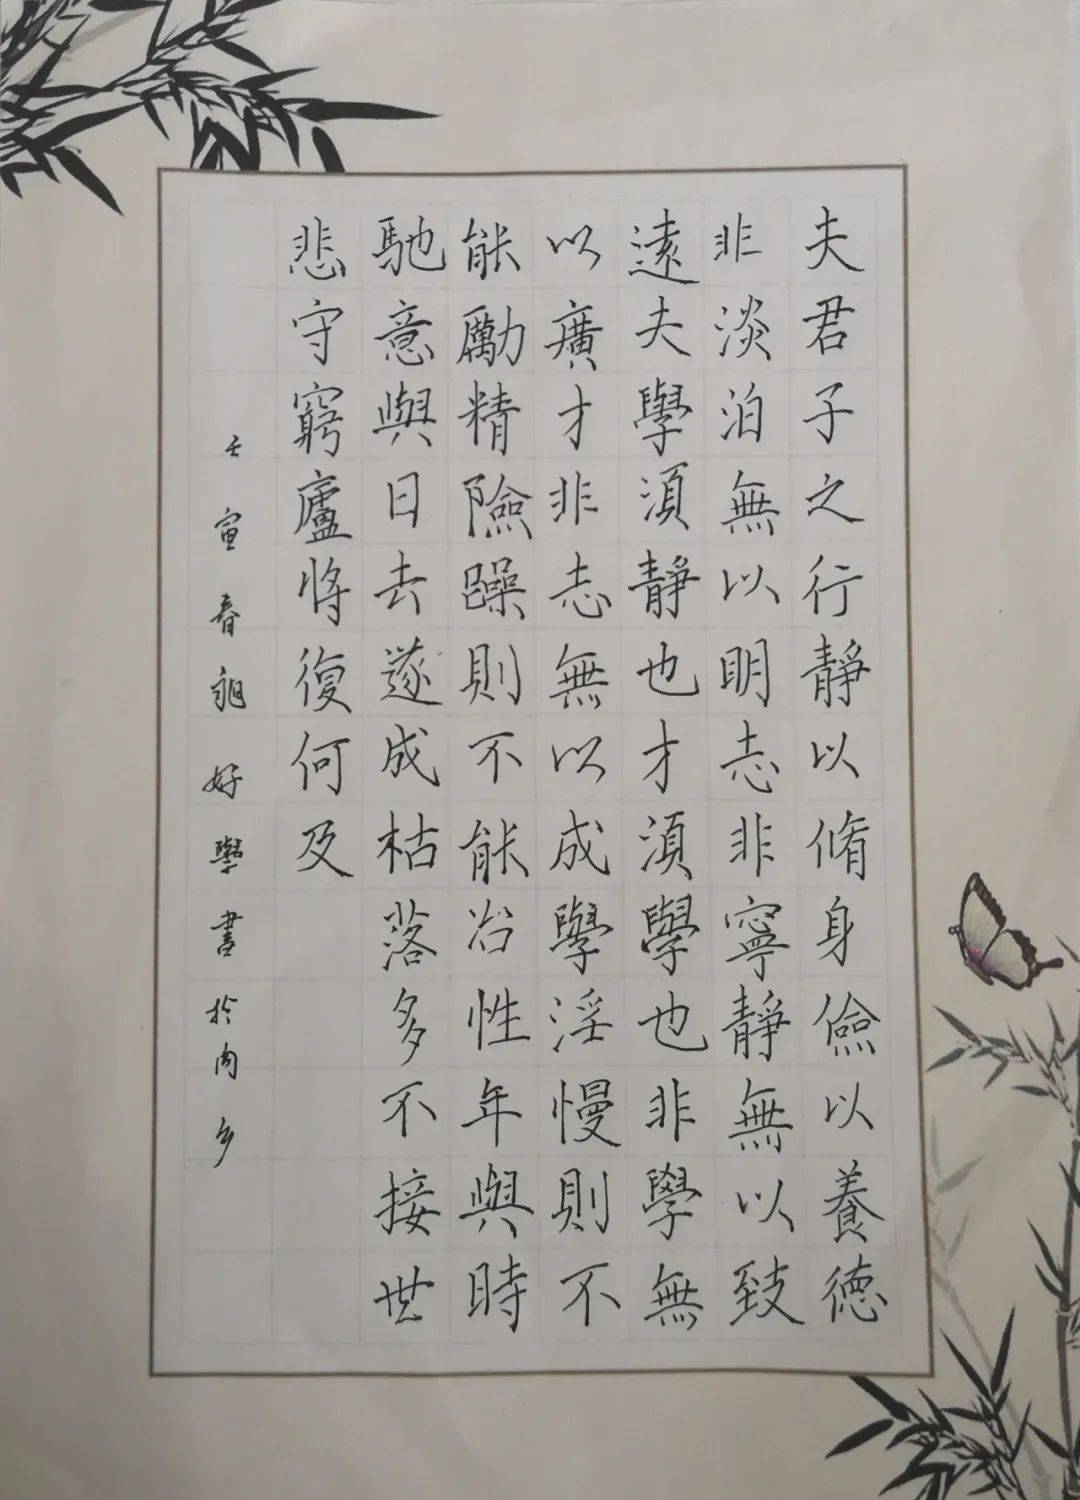 夫君子之行靜以脩身儉以養德
非淡泊無以明志非寧靜無以致
遠夫學須靜也才須學也非學無
以廣才非志無以成學淫慢則不
能勵精險躁則不能冶性年與時
馳意與日去遂成枯落多不接世
悲守窮廬將復何及
壬寅春好學書於乡